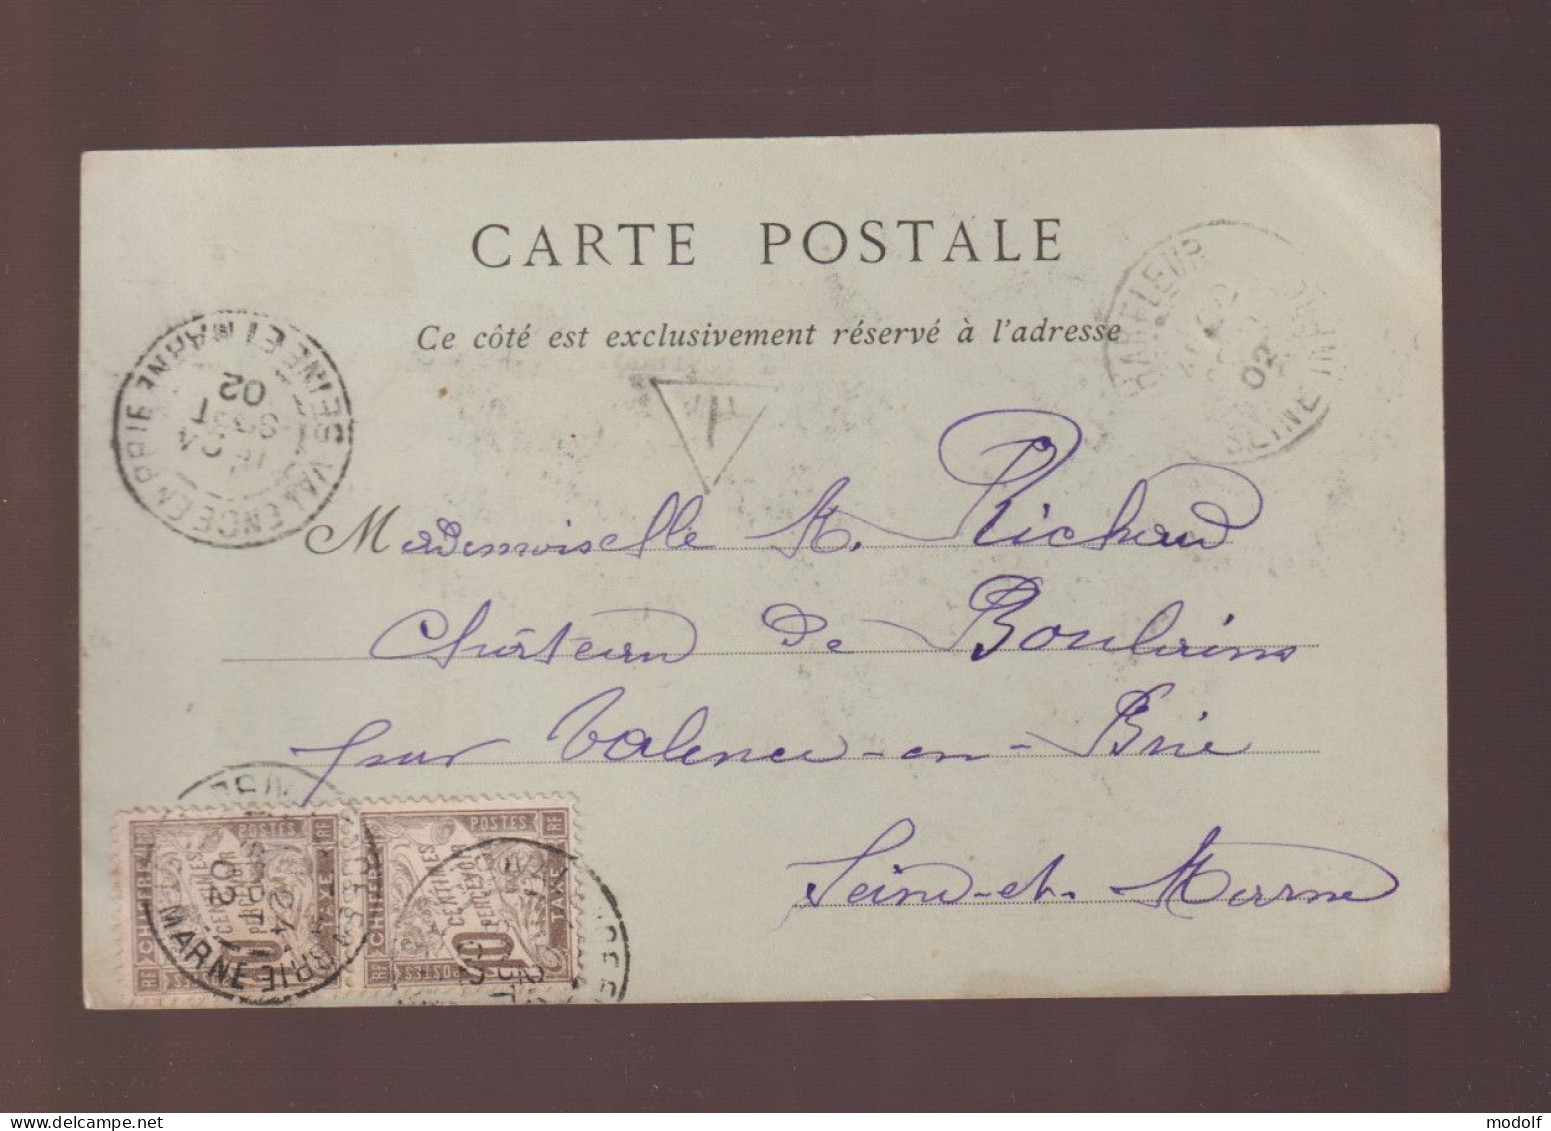 CARTE POSTALE
Ce côté est exclusivement réservé à l'adresse
HARFLEUR
02
SEINE INFRE
VALENCE EN BRIE
SEINE ET MARNE
02
T
Mademoiselle M. Richard
Château de Boulains
par Valence-en-Brie
Seine-et-Marne
POSTES RF
CENTIMES
PERCEVOIR
10
CHIFFRE TAXE
RF POSTES
POSTES RF
CENTIMES
PERCEVOIR
10
CHIFFRE TAXE
RF POSTES
24
SEPT
02
MARNE
modolf